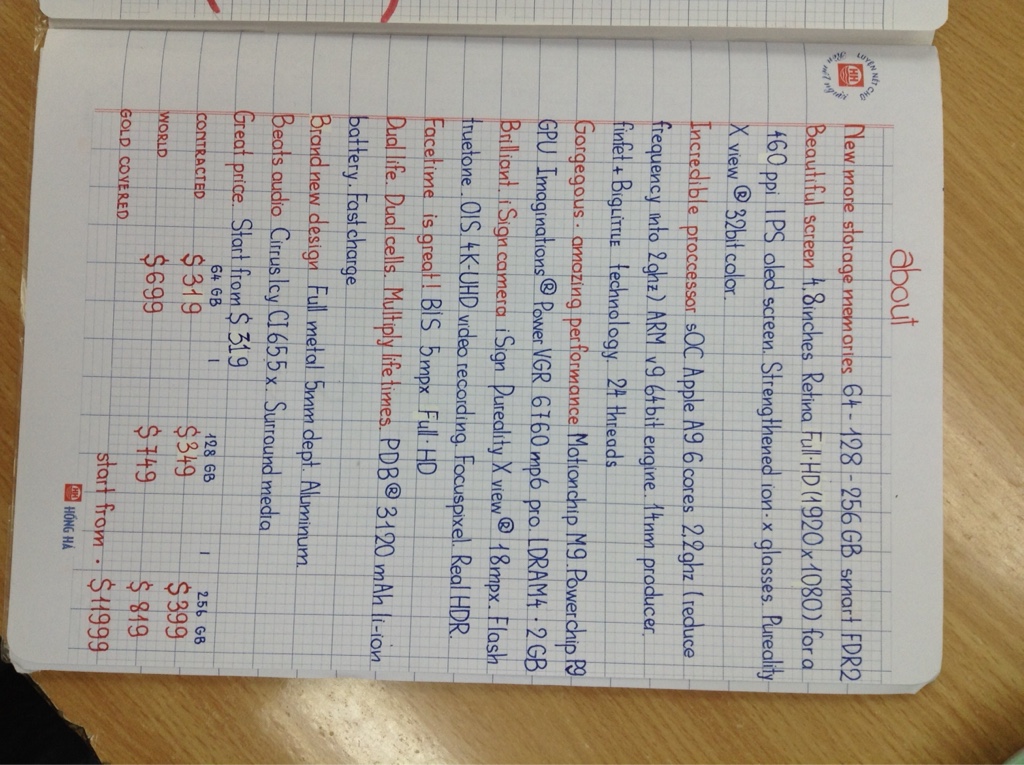 about
New more storage memories 64-128-256GB smart FDRR2
Beautiful screen 4.8inches Retina Full-HD (1920x1080) for a
460 ppi IPS oled screen. Strengthened ion-x glasses. Pureality
X view ® 32bit color.
Incredible proccessor sOC Apple A9 6 cores 2,2ghz (reduce
frequency into 2ghz) ARM v9 64bit engine. 14nm producer.
finfet + BigLITTLE technology. 24 threads
Gorgegous. amazing performance Motionchip M9. Powerchip P9
GPU Imaginations® PowerVGR 6760 mp6 pro. LDRAM4 · 2GB
Brilliant iSign camera iSign Dureality X view® 18mpx. Flash
truetone. OIS 4K-UHD video recording. Focuspixel. Real HDR.
Facetime is great! BIS 5mpx Full-HD
Dual life. Dual cells. Multiply life times. PDB® 3120 mAh li-ion
battery. Fastcharge
Brand new design Full metal 5mm dept. Aluminum.
Beats audio Cirruslcy CI655x. Surround media
Great price. Start from $ 319
64 GB | 128 GB | 256 GB
CONTRACTED $319 $349 $399
WORLD $699 $749 $819
GOLD COVERED start from . $11999
LUYỆN NÉT CHỮ
RÈN NẾT NGƯỜI
HH
HH HỒNG HÀ